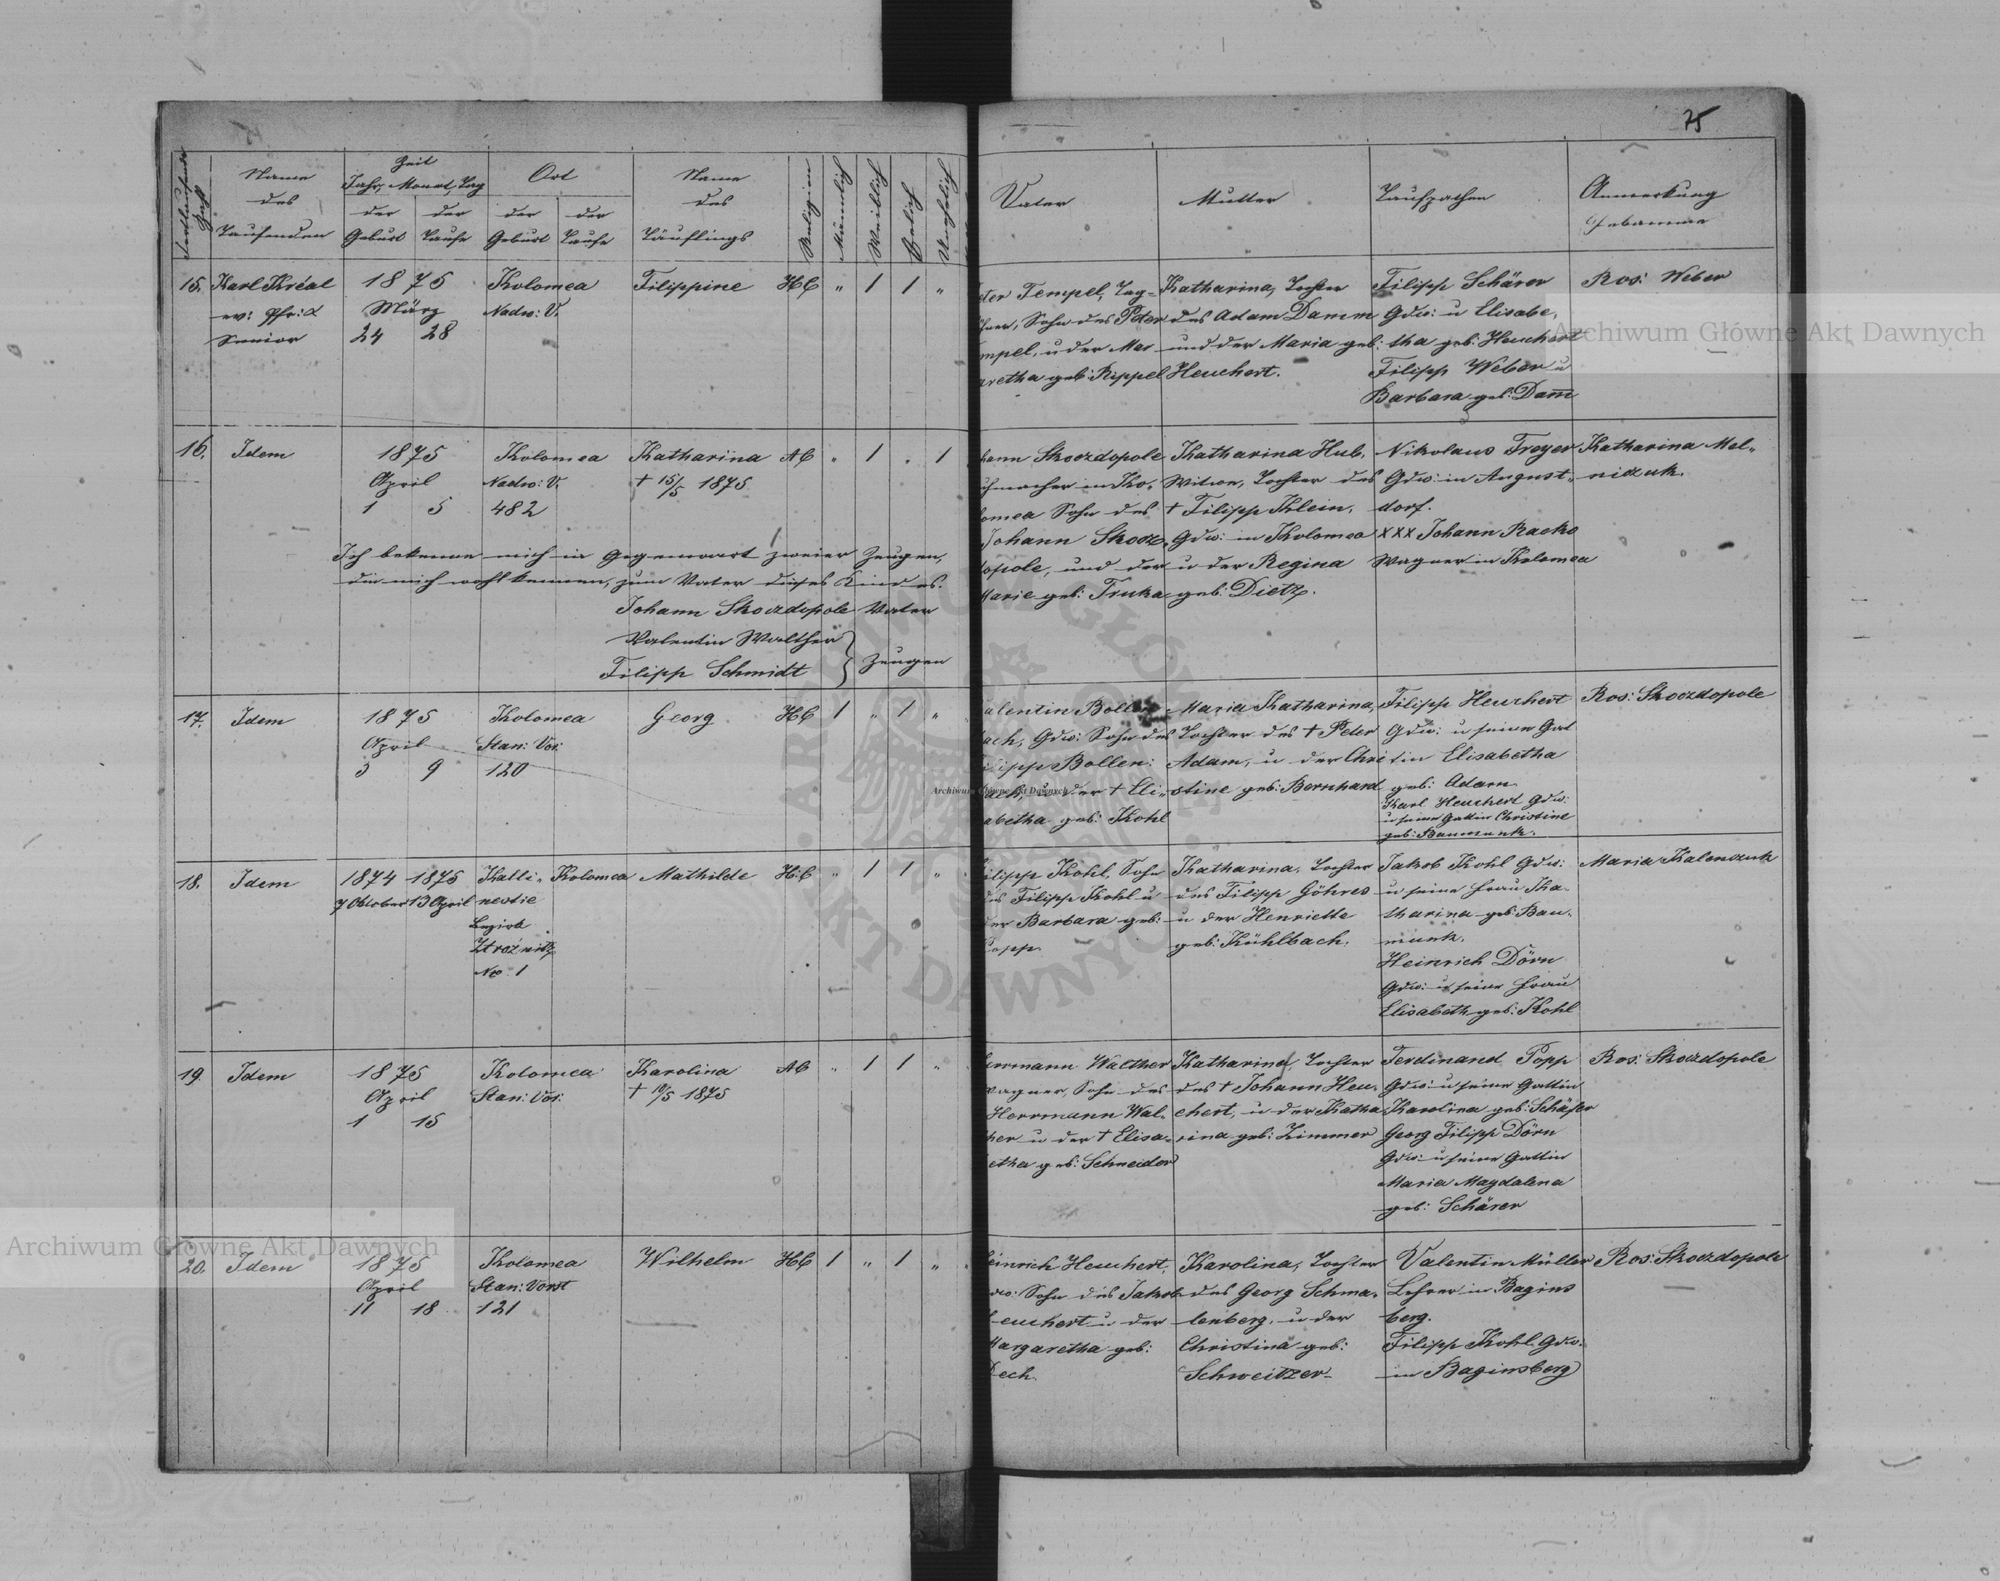 75
Fortlaufende Zahl
Name des Taufenden
Zeit
Jahr, Monat, Tag
der Geburt
der Taufe
Ort
der Geburt
der Taufe
Name des Täuflings
Religion
Männlich
Weiblich
Ehelich
Unehelich
Vater
Mutter
Taufpathen
Anmerkung
Hebamme
15.
Karl Kréal
ev: Pfr: &
Senior
1875
März
24 28
Kolomea
Nadw: V.
Filippine
HC
" 1 1 "
ter Tempel, Tag=
hner, Sohn des Peter
mpel, u der Mar
aretha geb: Rippel
Katharina, Tochter
des Adam Damm
und der Maria geb:
Heuchert.
Filipp Schärer
Gdw: u Elisabe,
tha geb: Heuchert
Filipp Weber u
Barbara geb: Dam̅
Ros: Weber
16.
Idem
1875
April
1 5
Kolomea
Nadw: V.
482
Katharina
† 15/5 1875
AC
" 1 . 1
hann Skoczdopole
uhmacher in Ko,
lomea Sohn des
Johann Skocz,
dopole, und der
Marie geb: Truka
Katharina Hub,
Witwe, Tochter des
† Filipp Klein,
Gdw: in Kolomea
u der Regina
geb: Dietz.
Nikolaus Troyer
Gdw: in August,
dorf.
XXX Johann Racko
Wagner in Kolomea
Katharina Mel,,
niczuk.
Ich bekenne mich in Gegenwart zweier Zeugen,
die mich wohl kennen, zum Vater dieses Kindes.
Johann Skoczdopole Vater
Valentin Walther
Filipp Schmidt
Zeugen
17.
Idem
1875
April
3 9
Kolomea
Stan: Vor:
120
Georg
HC
1 " 1 "
alentin Bollen
bach, Gdw: Sohn des
ilipp Bollen:
bach, u der † Eli,,
sabetha geb: Kohl
Maria Katharina,
Tochter des † Peter
Adam, u der Chri
stine geb: Bernhard
Filipp Heuchert
Gdw: u seine Gat
tin Elisabetha
geb: Adam
Karl Heuchert Gdw:
u seine Gattin Christine
geb: Baumunk.
Ros: Skoczdopole
18.
Idem
1874 1875
7 Oktober 13 April
Kalli,
nestie
Bezirk
No: 1
Kolomea
Mathilde
HC
" 1 1 "
Filipp Kohl, Sohn
des Filipp Kohl u
der Barbara geb:
Popp.
Katharina, Tochter
des Filipp Göhres
u der Henriette
geb: Kühlbach.
Jakob Kohl Gdw:
u seine Frau Ka,
tharina geb: Bau,
munk.
Heinrich Dörn
Gdw: u seine Frau
Elisabeth geb: Kohl
Maria Kalenczuk
19.
Idem
1875
April
1 15
Kolomea
Stan: Vor:
Karolina
† 10/5 1875
AC
" 1 1 "
Herrmann Walther
Wagner, Sohn des
Herrmann Wal,
ther u der † Elisa,
betha geb: Schneider
Katharina, Tochter
des † Johann Heu,
chert, u der Katha
rina geb: Zimmer
Ferdinand Popp
Gdw: u seine Gattin
Karolina geb: Schäfer
Georg Filipp Dörn
Gdw: u seine Gattin
Maria Magdalena
geb: Schärer
Ros: Skoczdopole
20.
Idem
1875
April
11 18
Kolomea
Stan: Vorst
121
Wilhelm
HC
1 " 1 "
Heinrich Heuchert,
Gdw: Sohn des Jakob
Heuchert u der
Margaretha geb:
Dech.
Karolina, Tochter
des Georg Schma,
lenberg, u der
Christina geb:
Schweitzer
Valentin Müller
Lehrer in Bagins
berg.
Filipp Kohl Gdw:
in Baginsberg
Ros: Skoczdopole
Archiwum Główne Akt Dawnych
Archiwum Główne Akt Dawnych
Archiwum Główne Akt Dawnych
ARCHIWUM GŁÓWNE AKT DAWNYCH